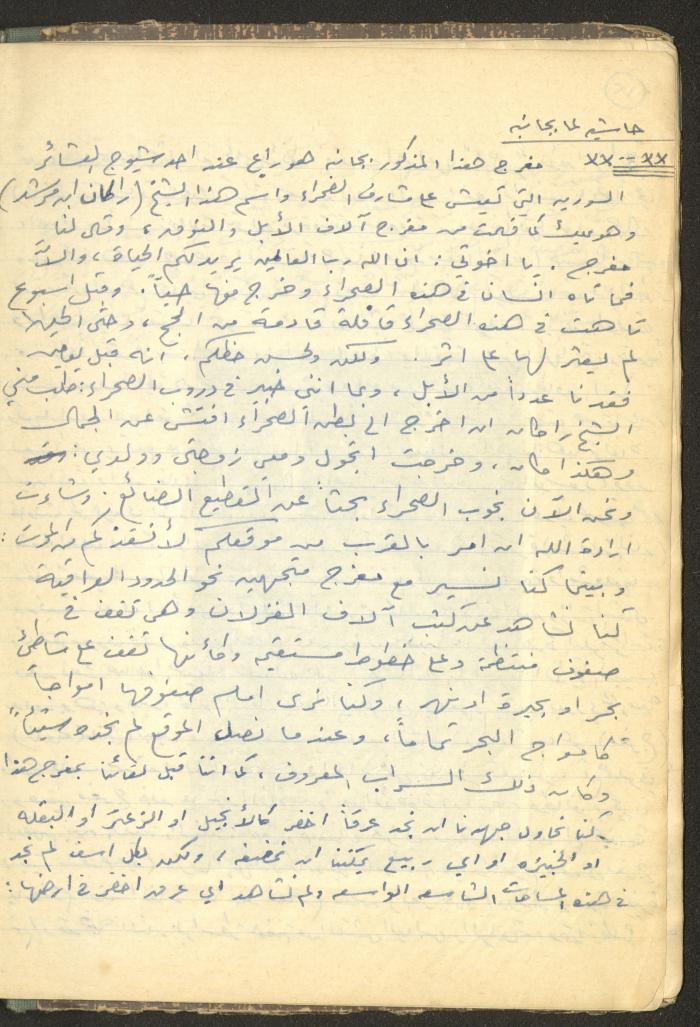 حاشية لما بجانبه
×× == ×× مفرج هذا المذكور بجانبه هو راعٍ عند احد شيوخ العشائر
السورية التي تعيش على مشارف الصحراء واسم هذا الشيخ (راكان ابن مرشد)
وهو يملك كما فهمت من مفرج آلاف الأبل والنوق، وقال لنا
مفرج. يا اخوتي: ان الله رب العالمين يريد لكم الحياة، والاّ
فما تاه انسان في هذه الصحراء وخرج منها حياً. وقبل اسبوع
تاهت في هذه الصحراء قافلة قادمة من الحج، وحتى الحينها
لم يعثر لها على اثر. ولكن ولحسن حظكم. انه قبل يومين
فقدنا عدداً من الأبل، وبما انني خبير في دروب الصحراء: طلب مني
الشيخ راكان ان اخرج الى بطن الصحراء افتش عن الجمال
وهكذا كان، وخرجت اتجول ومعي زوجتي وولدي:
ونحن الآن نجوب الصحراء بحثاً عن القطيع الضائع: وشاءت
ارادة الله ان امر بالقرب من موقعكم لأنقذكم من الموت:
وبينما كنا نسير مع مفرج متجهين نحو الحدود العراقية
كنا نشاهد عن كثب آلاف الغزلان وهي تقف في
صفوف منتظمة وعلى خطوط مستقيمة وكأنها تقف على شاطئ
بحر او بحيرة او نهر، وكنا نرى امام صفوفها امواجاً
كأمواج البحر تماماً، وعندما نصل الموقع لم نجده شيئاً
وكان ذلك السراب المعروف، كما اننا قبل لقائنا بمفرج هذا
كنا نحاول جهدنا ان نجد عرقاً اخضر كالأنجيل او الزعتر او البقله
او الخبيزه او اي ربيع يمكننا ان نمضغه، ولكن بكل اسف لم نجد
في هذه المساحات الشاسعه الواسعه ولم نشاهد اي عرق اخضر في ارضها: